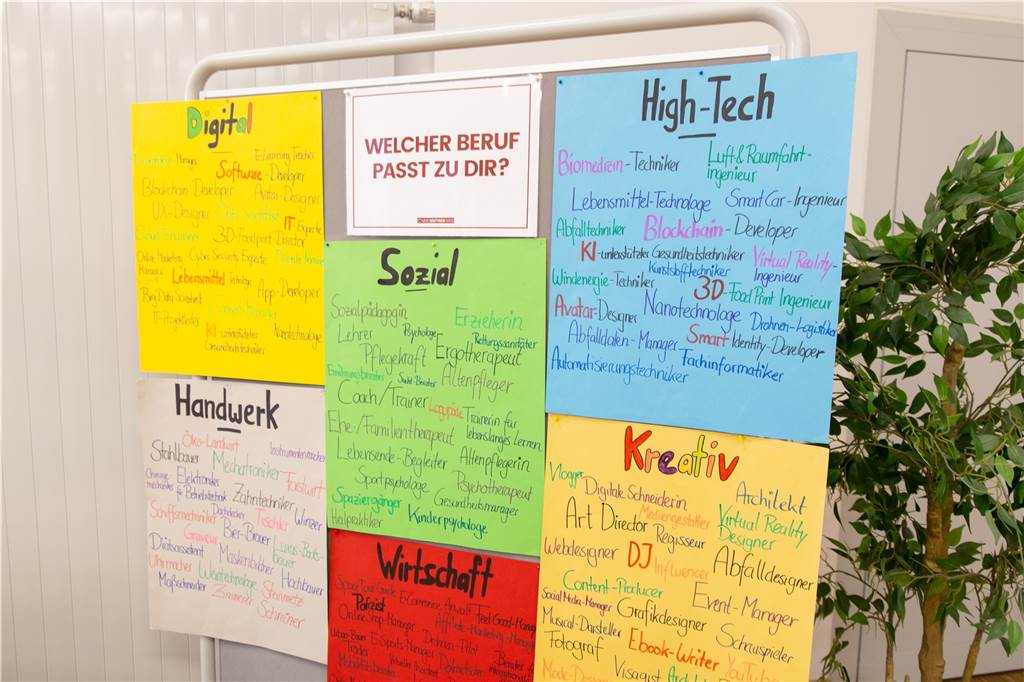 WELCHER BERUF
PASST ZU DIR?
Digital
E-Learning Teacher
Software-Developer
Blockchain Developer
Avatar-Designer
UX-Designer Data Scientist
IT Experte
Cloud Engineer 3D-Foodprint-Director
Cyber Security Experte
Online-Marketing Manager
Lebensmittel
App-Developer
Big Data Scientist
IT-Projektleiter
KI-unterstützter Gesundheitstechniker
Nanotechnologe
High-Tech
Biomedizin-Techniker
Luft & Raumfahrt-
ingenieur
Lebensmittel-Technologe SmartCar-Ingenieur
Abfalltechniker Blockchain-Developer
KI-unterstützter Gesundheitstechniker
Virtual Reality-
Ingenieur
Kunstofftechniker
Windenergie-Techniker
3D-Food Print Ingenieur
Avatar-Designer Nanotechnologe Drohnen-Logistiker
Abfalldaten-Manager Smart Identity-Developer
Automatisierungstechniker Fachinformatiker
Sozial
Sozialpädagogin
Erzieherin
Lehrer Psychologe Rettungssanitäter
Pflegekraft Ergotherapeut
Ernährungsberater
Altenpfleger
Coach/Trainer Logopäde Trainerin für
lebenslanges Lernen
Ehe-/Familientherapeut
Lebensende-Begleiter Altenpflegerin
Sportpsychologe Psychotherapeut
Spaziergänger Gesundheitsmanager
Heilpraktiker Kinderpsychologe
Handwerk
Öko-Landwirt
Instrumentenmacher
Stahlbauer
Mechatroniker
Elektroniker
für Betriebstechnik
Forstwirt
Zahntechniker
Dachdecker
Schiffsmechaniker
Tischler Winzer
Bier-Brauer
Graveur
Luxus-Boots-
bauer
Maskenbildner
Uhrmacher
Hochbauer
Maßschneider
Zimmerer
Steinmetz
Schreiner
Kreativ
Vlogger
Digitale Schneiderin
Architekt
Mediengestalter
Art Director
Virtual Reality
Designer
Regisseur
Webdesigner DJ Influencer Abfalldesigner
Content-Producer
Social Media-Manager Grafikdesigner Event-Manager
Musical-Darsteller
Schauspieler
Fotograf Ebook-Writer
YouTube
Visagist
Wirtschaft
E-Commerce Anwalt Feel Good-Manager
Polizist
Online Shop-Manager
Affiliate-Marketing-Manager
E-Sports-Manager
Drohnen-Pilot